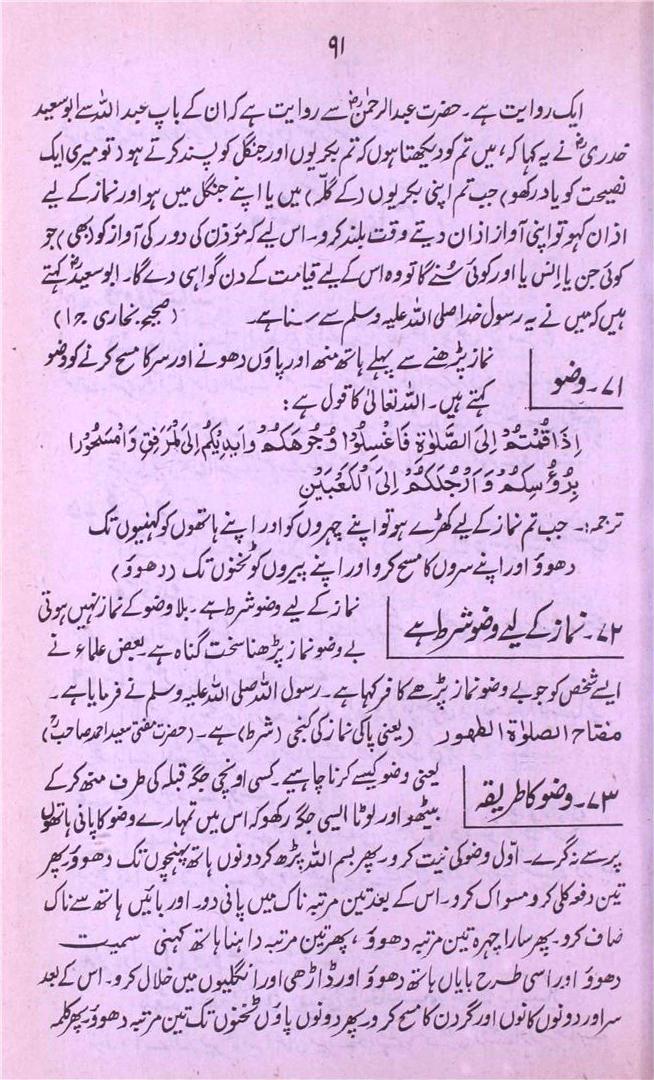 ۹۱
ایک روایت ہے۔ حضرت عبدالرحمٰنؓ سے روایت ہے کہ ان کے باپ عبداللہ سے ابوسعید
خدریؓ نے یہ کہا کہ، میں تم کو دیکھتا ہوں کہ تم بکریوں اور جنگل کو پسند کرتے ہو (تو میری ایک
نصیحت کو یاد رکھو) جب تم اپنی بکریوں (کے گلّہ) میں یا اپنے جنگل میں ہو اور نماز کے لیے
اذان کہو تو اپنی آواز اذان دیتے وقت بلند کرو۔ اس لیے کہ مؤذن کی دور کی آواز کو (بھی) جو
کوئی جن یا اِنس یا اور کوئی سُنے گا تو وہ اس کے لیے قیامت کے دن گواہی دے گا۔ ابوسعیدؓ کہتے
ہیں کہ میں نے یہ رسول خدا صلی اللہ علیہ وسلم سے سنا ہے۔ (صحیح بخاری ج۱)
۷۱۔ وضو
نماز پڑھنے سے پہلے ہاتھ منھ اور پاؤں دھونے اور سر کا مسح کرنے کو وضو
کہتے ہیں۔ اللہ تعالیٰ کا قول ہے:
اِذَا قُمْتُمْ اِلَی الصَّلٰوةِ فَاغْسِلُوْا وُجُوْهَكُمْ وَاَيْدِيَكُمْ اِلَی الْمَرَفِقِ وَامْسَحُوْا
بِرُؤُسِكُمْ وَاَرْجُلَكُمْ اِلَی الْكَعْبَيْنِ
ترجمہ:۔ جب تم نماز کے لیے کھڑے ہو تو اپنے چہروں کو اور اپنے ہاتھوں کو کہنیوں تک
دھوؤ اور اپنے سروں کا مسح کرو اور اپنے پیروں کو ٹخنوں تک (دھوؤ)
۷۲۔ نماز کے لیے وضو شرط ہے
نماز کے لیے وضو شرط ہے۔ بلا وضو کے نماز نہیں ہوتی
بے وضو نماز پڑھنا سخت گناہ ہے۔ بعض علماء نے
ایسے شخص کو جو بے وضو نماز پڑھے کافر کہا ہے۔ رسول اللہ صلی اللہ علیہ وسلم نے فرمایا ہے۔
مفتاح الصلوٰۃ الطھور (یعنی پاکی نماز کی کنجی (شرط) ہے۔ (حضرت مفتی سعید احمد صاحبؒ)
۷۳۔ وضو کا طریقہ
یعنی وضو کیسے کرنا چاہیے۔ کسی اونچی جگہ قبلہ کی طرف منھ کرکے
بیٹھو اور لوٹا ایسی جگہ رکھو کہ اس میں تمہارے وضو کا پانی ہاتھوں
پر سے نہ گرے۔ اوّل وضو کی نیت کرو۔ پھر بسم اللہ پڑھ کر دونوں ہاتھ پہنچوں تک دھوؤ۔ پھر
تین دفعہ کلی کرو مسواک کرو۔ اس کے بعد تین مرتبہ ناک میں پانی دو۔ اور بائیں ہاتھ سے ناک
صاف کرو۔ پھر سارا چہرہ تین مرتبہ دھوؤ، پھر تین مرتبہ داہنا ہاتھ کہنی سمیت
دھوؤ اور اسی طرح بایاں ہاتھ دھوؤ اور ڈاڑھی اور انگلیوں میں خلال کرو۔ اس کے بعد
سر اور دونوں کانوں اور گردن کا مسح کرو۔ پھر دونوں پاؤں ٹخنوں تک تین مرتبہ دھوؤ۔ پھر کلمہ